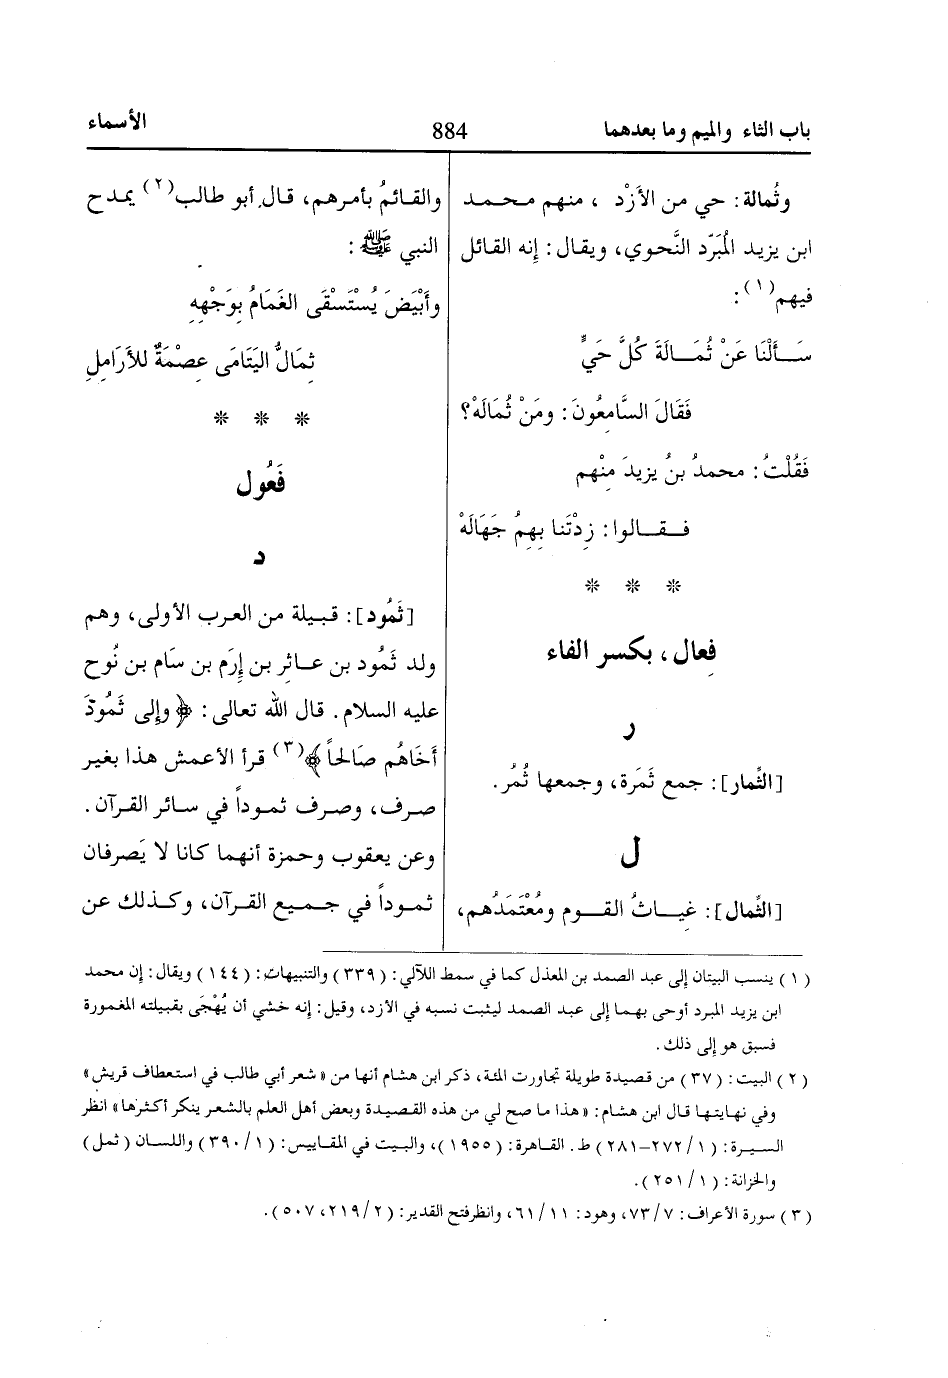 باب الثاء والميم وما بعدهما
884
الأسماء
وثُمالة: حي من الأزْد ، منهم محمد
ابن يزيد المُبَرّد النَّحوي، ويقال: إنه القائل
فيهم(١):
سَـأَلْنَا عَنْ ثُمَـالَةَ كُلَّ حَيٍّ
فَقَالَ السَّامعُونَ: ومَنْ ثُمَالَهْ؟
فَقُلْتُ: محمدُ بنُ يزيدَ مِنْهم
فـقـالوا: زِدْتَنا بِهِمُ جَهَالَهْ
* * *
فِعال، بكسر الفاء
ر
[الثِّمار]: جمع ثَمَرة، وجمعها ثُمُر.
ل
[الثِّمال]: غيـاثُ القـوم ومُعْتَمَدُهم،
والقـائمُ بأمرهم، قال أبو طالب(٢) يمدح
النبي ﷺ:
وأَبْيَضَ يُسْتَسْقَى الغَمَامُ بوَجْهِهِ
ثِمَالُ اليَتَامَى عِصْمَةٌ للأَرَامِلِ
* * *
فَعُول
د
[ثَمُود]: قبيلة من العرب الأولى، وهم
ولد ثَمُود بن عـاثِر بن إِرَم بن سَام بن نُوح
عليه السلام. قال الله تعالى: ﴿وإلى ثَمُودَ
أَخَاهُم صَالحاً﴾(٣) قرأ الأعمش هذا بغير
صرف، وصرف ثمـوداً في سائر القرآن.
وعن يعقوب وحمزة أنهما كانا لا يَصرفان
ثمـوداً في جـميع القرآن، وكـذلك عن
(١) ينسب البيتان إلى عبد الصمد بن المعذل كما في سمط اللآلي: (٣٣٩) والتنبيهات: (١٤٤) ويقال: إن محمد
ابن يزيد المبرد أوحى بهما إلى عبد الصمد ليثبت نسبه في الأزد، وقيل: إنه خشي أن يُهْجَى بقبيلته المغمورة
فسبق هو إلى ذلك.
(٢) البيت: (٣٧) من قصيدة طويلة تجاورت المئة، ذكر ابن هشام أنها من «شعر أبي طالب في استعطاف قريش»
وفي نهايتها قال ابن هشام: «هذا ما صح لي من هذه القصيدة وبعض أهل العلم بالشعر ينكر أكثرها» انظر
السيرة: (١/ ٢٧٢-٢٨١) ط. القاهرة: (١٩٥٥)، والبيت في المقاييس: (١/ ٣٩٠) واللسان (ثمل)
والخزانة: (١/ ٢٥١).
(٣) سورة الأعراف: ٧/ ٧٣، وهود: ١١/ ٦١، وانظرفتح القدير: (٢/ ٢١٩، ٥٠٧).